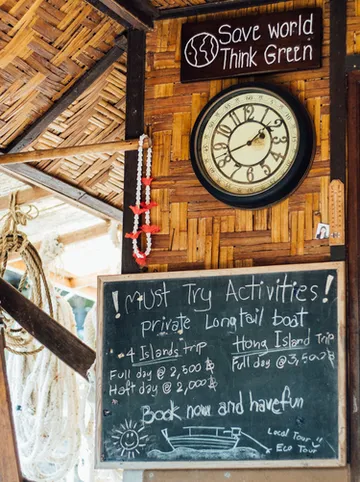 Save world
Think Green
12
1
2
3
4
5
6
7
8
9
10
11
! Must Try Activities!
private Longtail boat
4 Islands trip
Full day @ 2,500 ฿
Haft day @ 2,000 ฿
Hong Island Trip
Full day @ 3,500 ฿
Book now and havefun
Local Tour
Eco Tour